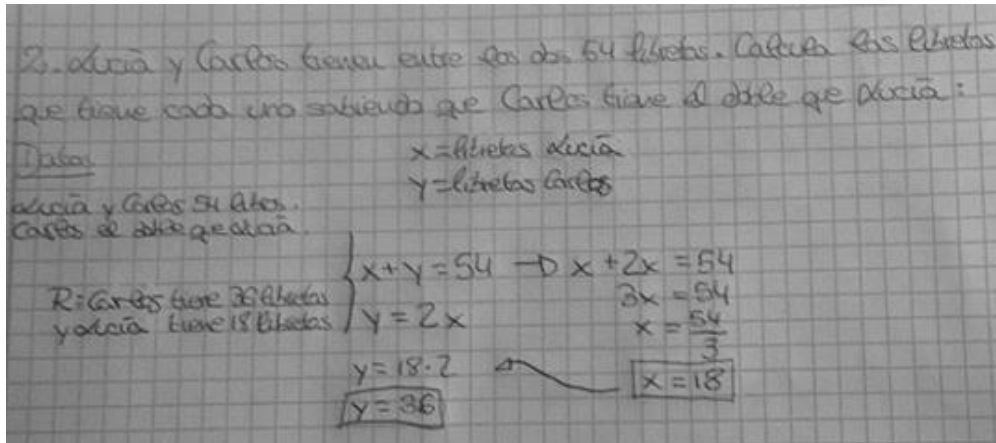 2. Lucía y Carlos tienen entre los dos 54 libretas. Calcula las libretas
que tiene cada uno sabiendo que Carlos tiene el doble que Lucía:
Datos
x = libretas Lucía
y = libretas Carlos
Lucía y Carlos 54 libros.
Carlos el doble que Lucía.
x + y = 54 → x + 2x = 54
3x = 54
R: Carlos tiene 36 libretas
y Lucía tiene 18 libretas
y = 2x
x = 54/3
y = 18 · 2
x = 18
y = 36